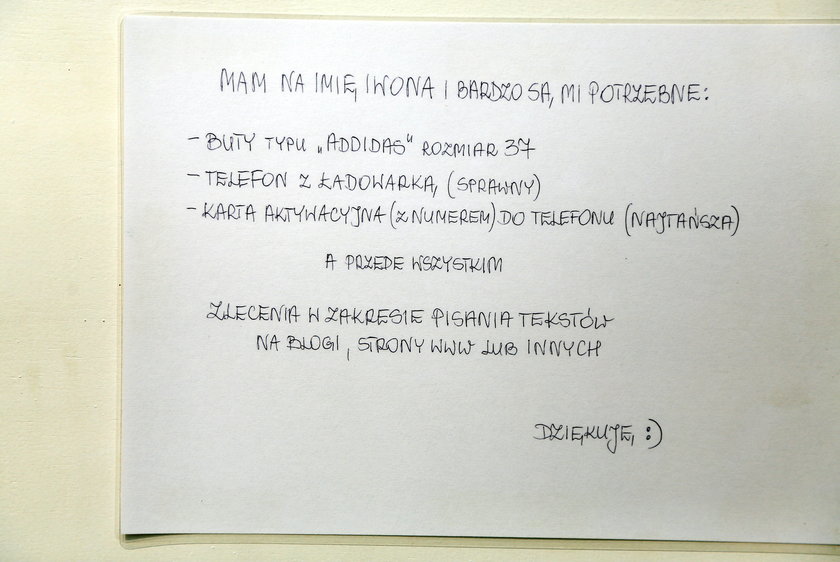 MAM NA IMIĘ IWONA I BARDZO SĄ MI POTRZEBNE:
- BUTY TYPU „ADDIDAS" ROZMIAR 37
- TELEFON Z ŁADOWARKĄ (SPRAWNY)
- KARTA AKTYWACYJNA (Z NUMEREM) DO TELEFONU (NAJTAŃSZA)
A PRZEDE WSZYSTKIM
ZLECENIA W ZAKRESIE PISANIA TEKSTÓW
NA BLOGI, STRONY WWW LUB INNYCH
DZIĘKUJĘ :)